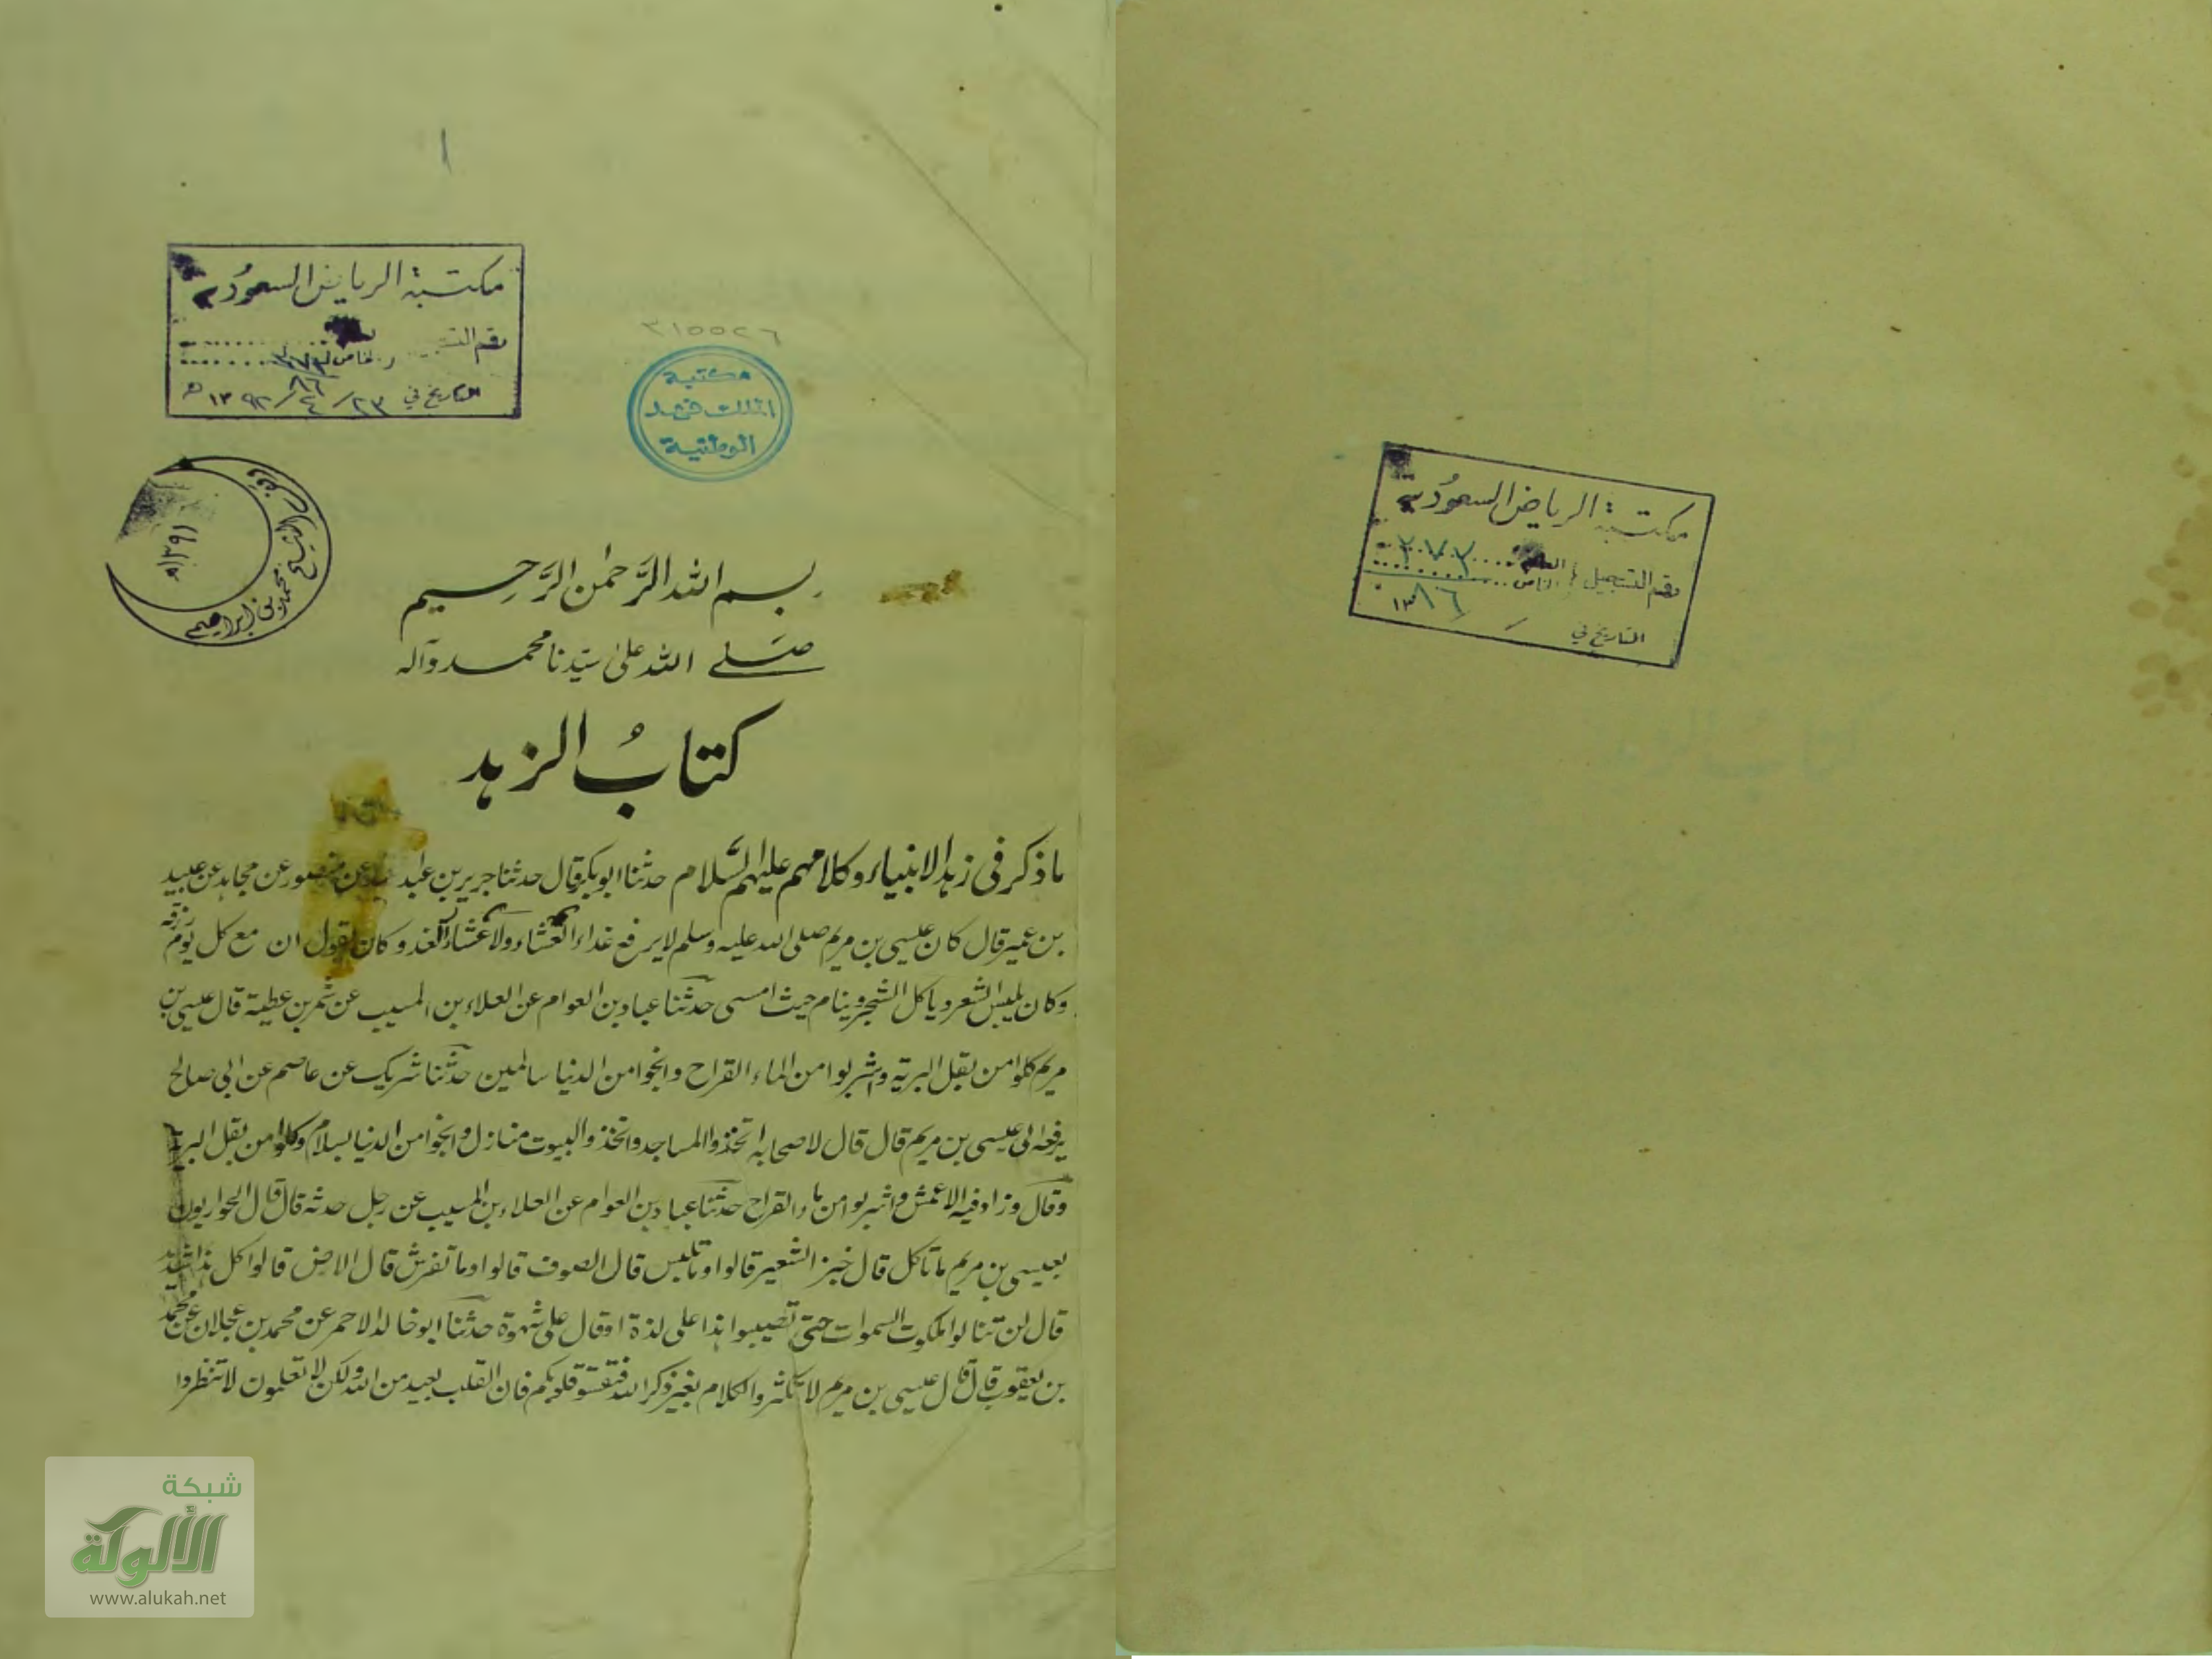 ١
مكتبة الرياض السعودية
رقم التسجيل
الخاص
التاريخ في ٢٣ / ٤ / ١٣٩٢ هـ
٣١٥٥٢٦
مكتبة
الملك فهد
الوطنية
الشيخ محمد بن ابراهيم
١٣٩١هـ
بسم الله الرَّحمٰن الرَّحيم
صلے الله علیٰ سيّدنا محمد وآله
كتابُ الزهد
ما ذكر فى زهد الانبياء وكلامهم عليهم السَّلام حدثنا ابو بكر قال حدثنا جرير بن عبد عن منصور عن مجاهد عن عبيد
بن عمير قال كان عيسى بن مريم صلى الله عليه وسلم لا يرفع غداء العشاء ولا عشاء الغد وكان يقول ان مع كل يوم رزقه
وكان يلبس الشعر ويا كل الشجر وينام حيث امسى حدثنا عباد بن العوام عن العلاء بن المسيب عن شمر بن عطية قال عيسى بن
مريم كلوا من بقل البرية واشربوا من الماء القراح وانجوا من الدنيا سالمين حدثنا شريك عن عاصم عن ابى صالح
يرفعه الى عيسى بن مريم قال قال لاصحابه اتخذوا المساجد واتخذوا البيوت منازل وانجوا من الدنيا بسلام وكلوا من بقل البرية
وقال وزاد فيه الاعمش واشربوا من ماء القراح حدثنا عباد بن العوام عن العلاء بن المسيب عن رجل حدثه قال قال الحواريون
بعيسى بن مريم ما تاكل قال خبز الشعير قالوا وما تلبس قال الصوف قالوا وما تفرش قال الارض قالوا كل هذا شديد
قال لن تنالوا ملكوت السموات حتى تصيبوا هذا على لذة او قال على شهوة حدثنا ابو خالد الاحمر عن محمد بن عجلان عن محمد
بن يعقوب قال قال عيسى بن مريم لا تكثروا الكلام بغير ذكر الله فتقسو قلوبكم فان القلب بعيد من الله ولكن لا تعلمون لا تنظروا
شبكة
الألوكة
www.alukah.net
مكتبة الرياض السعودية
رقم التسجيل العام ٢٧٣
الخاص ٨٦
التاريخ في / ١٣